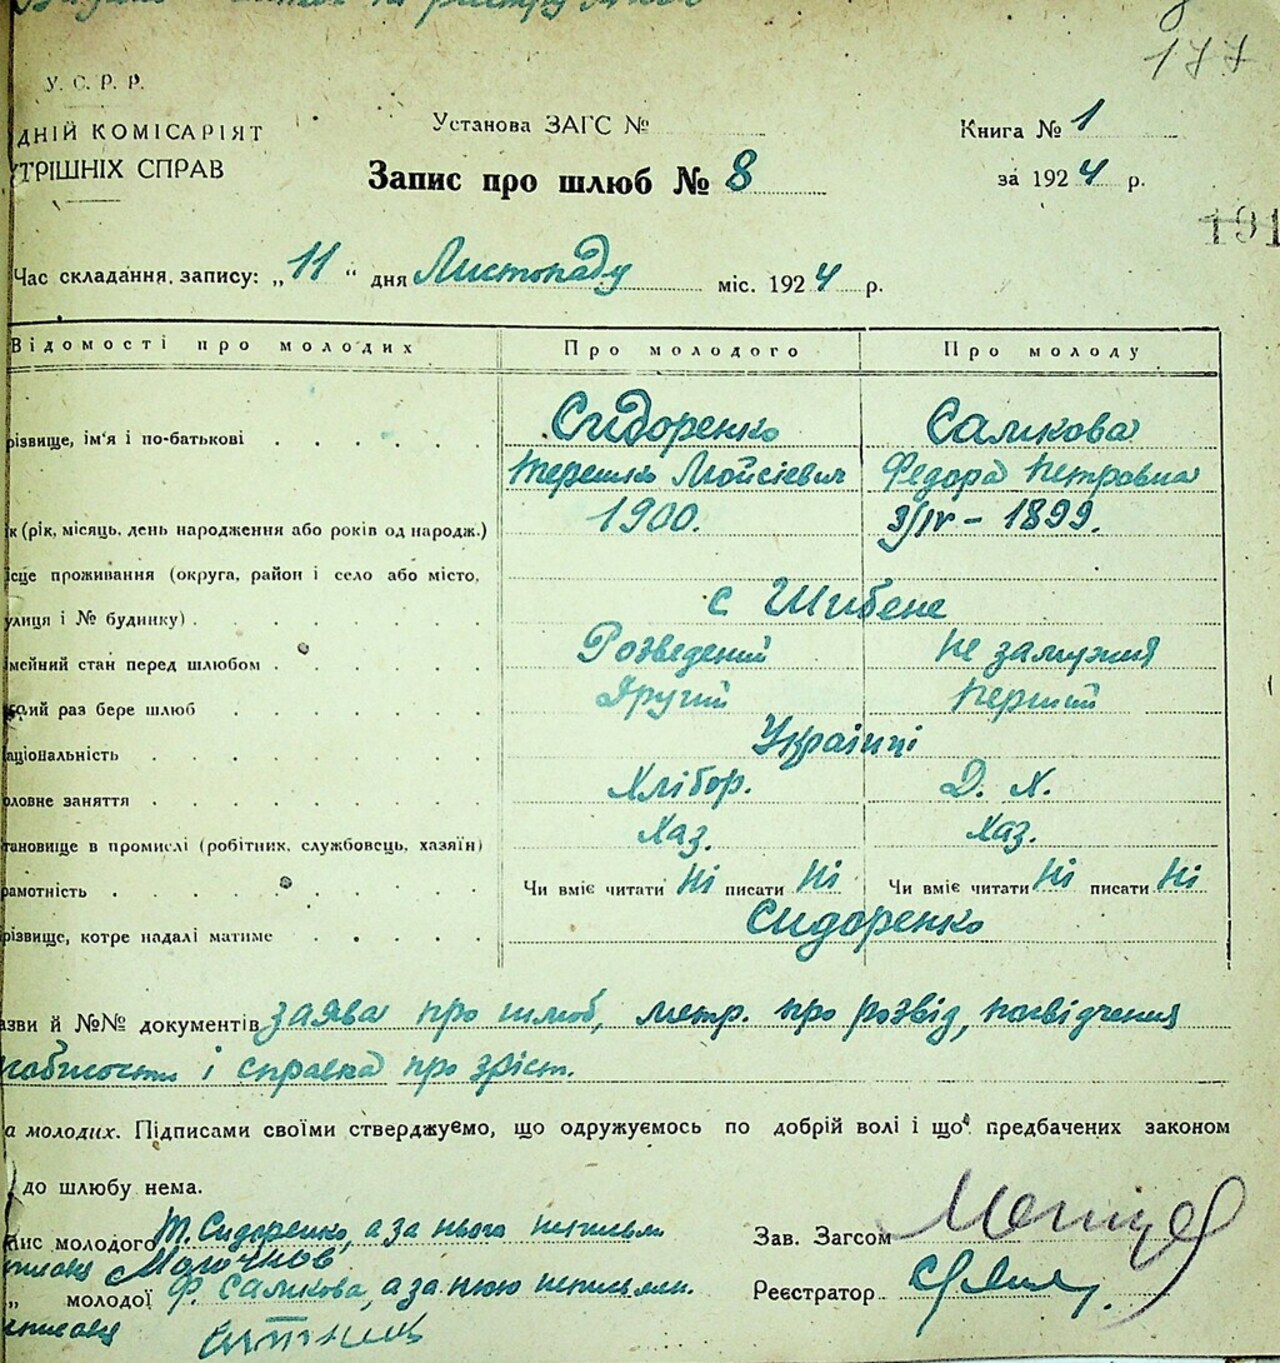 177
У. С. Р. Р.
ДНІЙ КОМІСАРІЯТ
ТРІШНІХ СПРАВ
Установа ЗАГС №
Книга № 1
Запис про шлюб № 8
за 1924 р.
191
Час складання запису: „11“ дня Листопаду міс. 1924 р.
Відомості про молодих Про молодого Про молоду
різвище, ім'я і по-батькові Сидоренко Саликова
Терешко Мойсієвич Федора Петровна
к (рік, місяць, день народження або років од народж.) 1900. 3/IV – 1899.
ісце проживання (округа, район і село або місто,
улиця і № будинку) с Шибене
імейний стан перед шлюбом Розведений не замужня
який раз бере шлюб Другий перший
аціональність Українці
оловне заняття Хлібор. Д. Х.
тановище в промислі (робітник, службовець, хазяїн) Хаз. Хаз.
рамотність Чи вміє читати Ні писати Ні Чи вміє читати Ні писати Ні
різвище, котре надалі матиме Сидоренко
азви й №№ документів заява про шлюб, метр. про розвід, посвідчення
і справка про зріст.
а молодих. Підписами своїми стверджуємо, що одружуємось по добрій волі і що предбачених законом
до шлюбу нема.
пис молодого Т. Сидоренко, а за нього неписьм
Зав. Загсом
молодої Ф. Саликова, а за нюю неписьмен.
Реєстратор